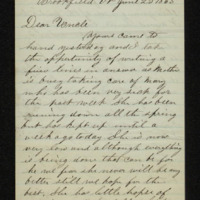 Brookfield Vt June 22 1863
Dear Uncle
Yours came to
hand yesterday and I take
the opportunity of writing a
few lines in answer as Mother
is busy taking care of Mary
who has been very sick for
the past week She has been
running down all the spring
but has kept up until a
week ago today She is now
very low and although everything
is being done that can be for
her we fear she never will be any
better Still we hope for the
best She has little hopes of